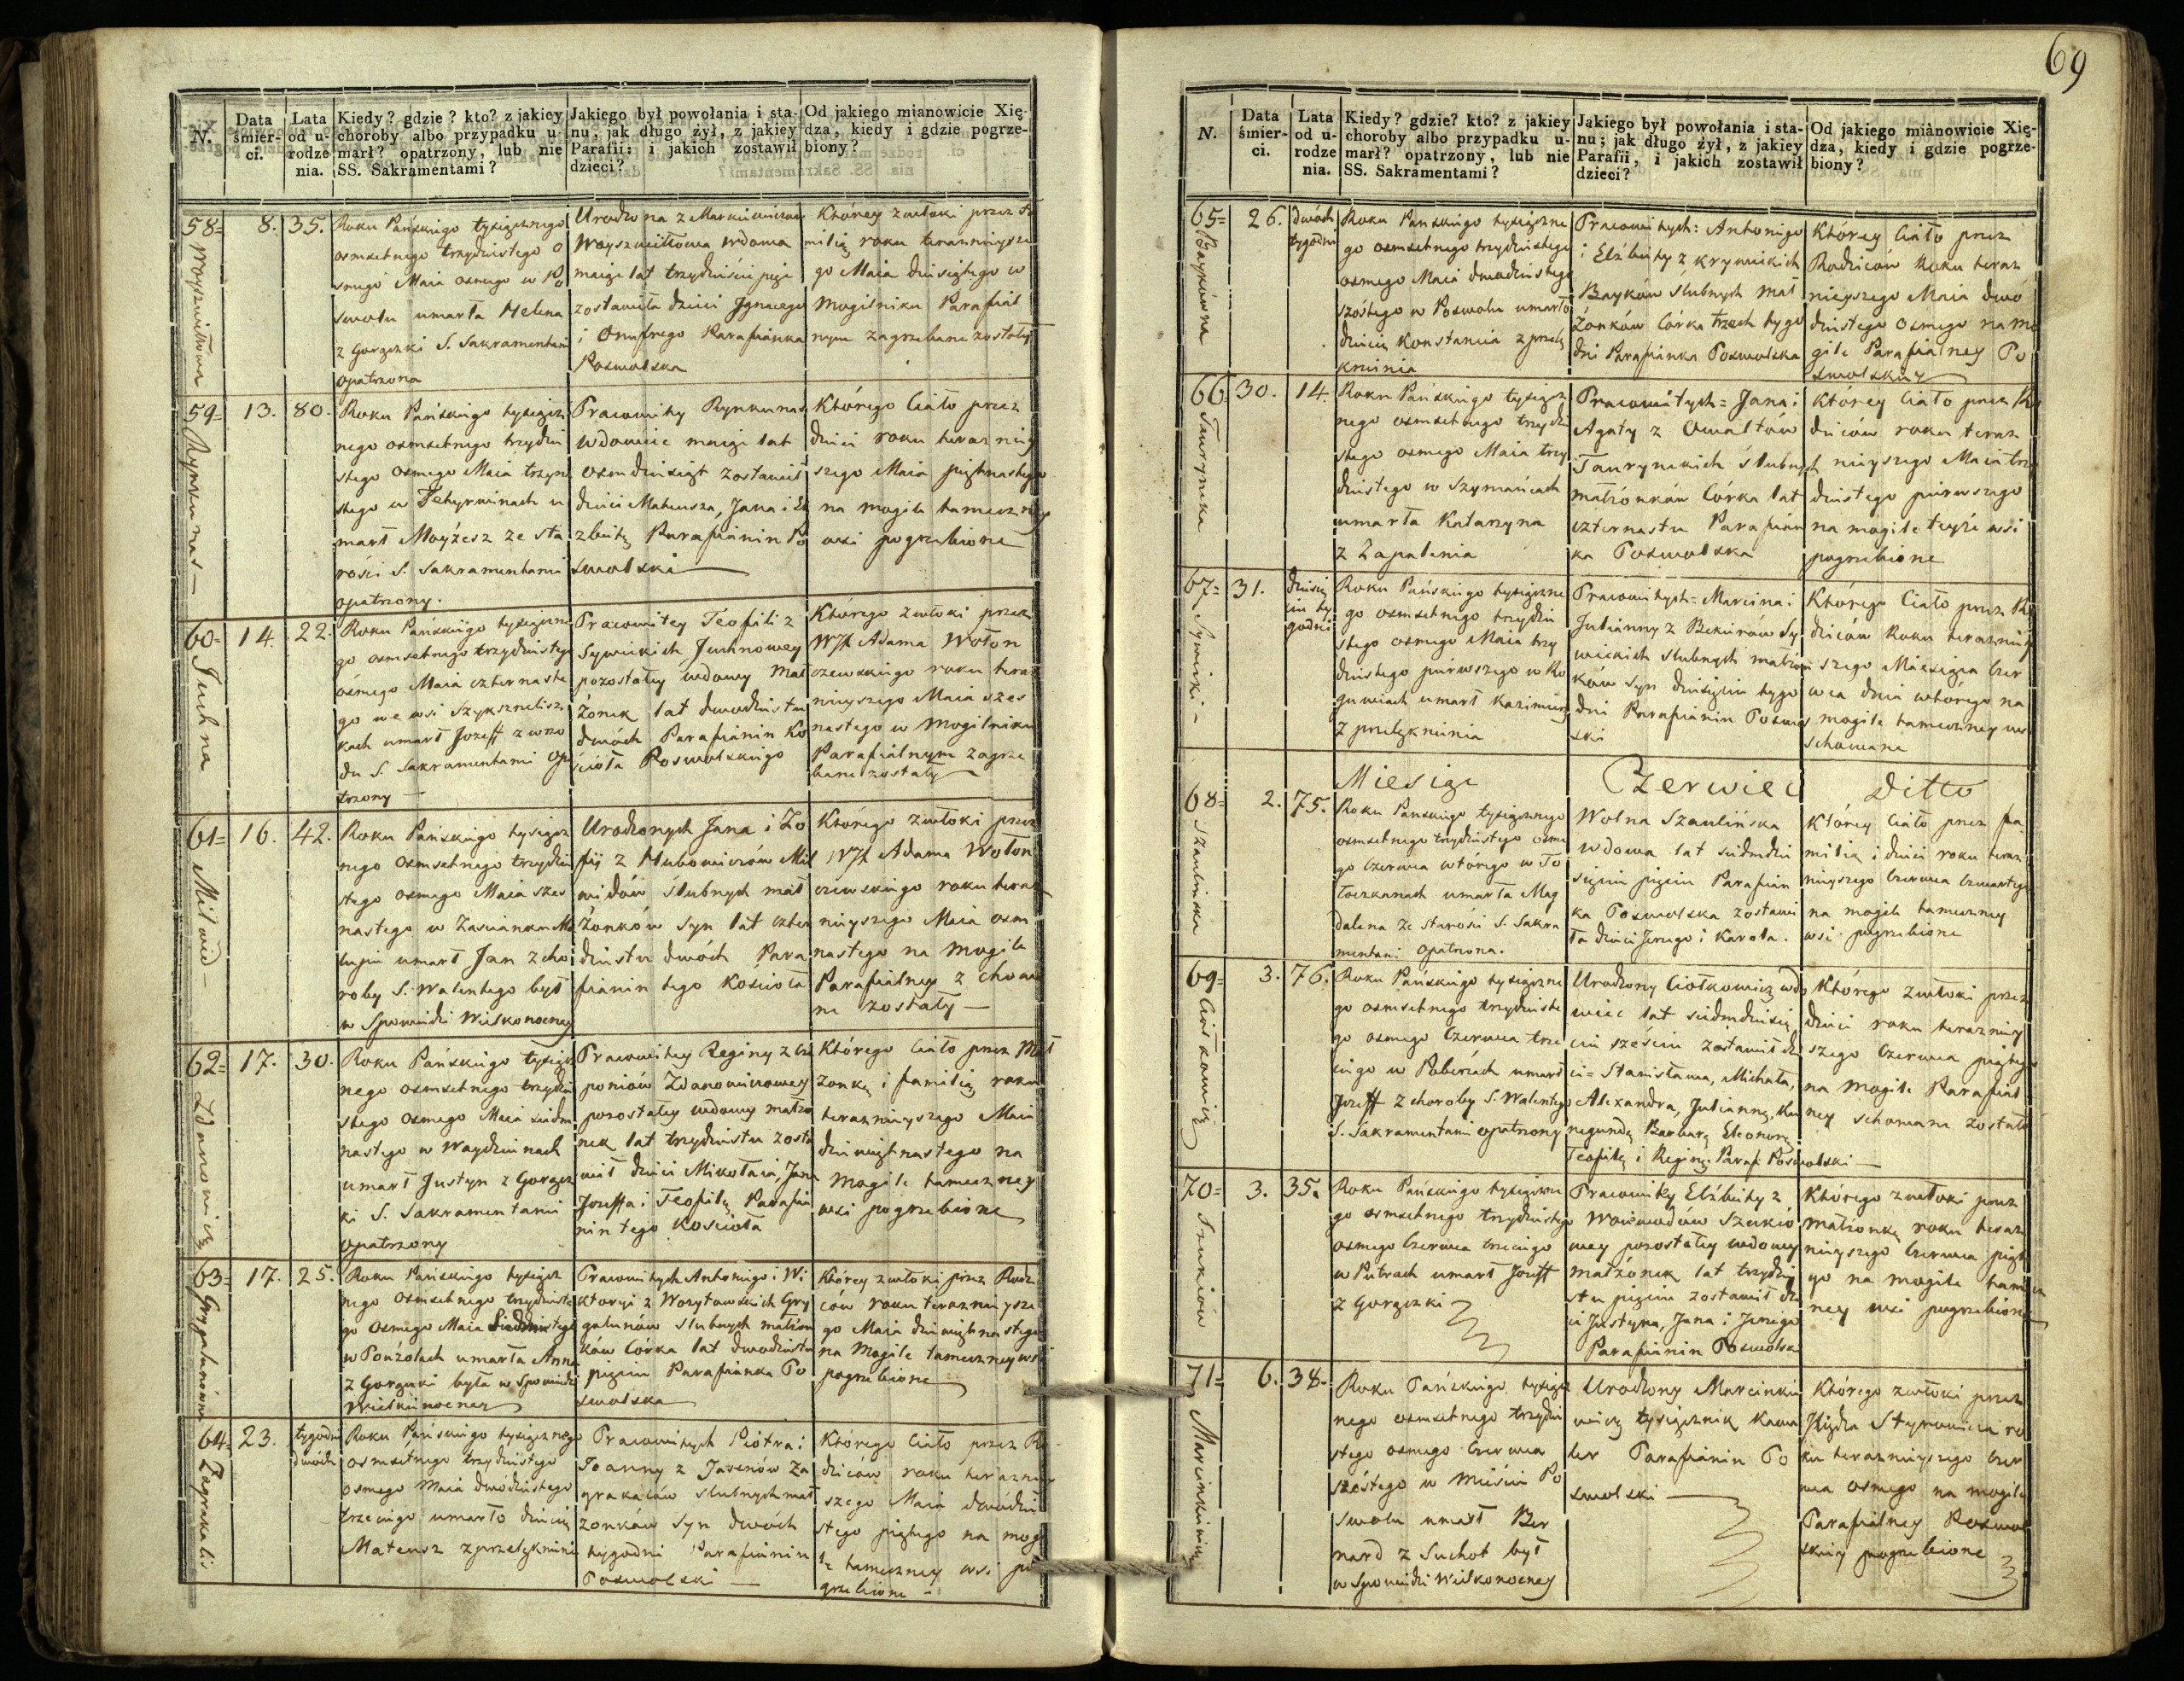 69
N.
Data śmierci.
Lata od urodzenia.
Kiedy? gdzie? kto? z jakiey
choroby albo przypadku u-
marł? opatrzony, lub nie
SS. Sakramentami?
Jakiego był powołania i sta-
nu, jak długo żył, z jakiey
Parafii: i jakich zostawił
dzieci?
Od jakiego mianowicie Xię-
dza, kiedy i gdzie pogrze-
biony?
58=
8.
35.
Roku Pańskiego tysiącznego
osmsetnego trzydziestego o
smego Maia osmego w Po
swolu umarła Helena
z Gorączki S. Sakramentami
opatrzona
Urodzona z Marcinkiewiczow
Woyszwiłłowa wdowa
maiąc lat trzydzieści pięć
zostawiła dzieci Jgnacego
i Onufrego Parafianka
Poswolska
Którey zwłoki przez fa
milią roku teraznieysze
go Maia dziesiątego w
Mogilniku Parafial
nym zagrzebane zostały
59=
Rynkunas
13.
80.
Roku Pańskiego tysiącz
nego osmsetnego trzydzie
stego osmego Maia trzyna
stego w Tetyrwinach u
marł Moyżesz ze sta
rości S. Sakramentami
opatrzony.
Pracowity Rynkunas
wdowiec maiąc lat
osmdziesiąt zostawił
dzieci Mateusza, Jana i El
zbietę Parafianin Po
swolski
Którego Ciało przez
dzieci roku terazniey
szego Maia piętnastego
na mogile tameczney
wsi pogrzebione
60=
Juchna
14.
22.
Roku Pańskiego tysiączne
go osmsetnego trzydziestego
osmego Maia czternaste
go we wsi Szykszneliszkach
kach umarł Jozeff z wrzo
du S. Sakramentami opa
trzony
Pracowitey Teofili z
Sywickich Juchnowey
pozostałey wdowy Mał
żonek lat dwudziestu
dwóch Parafianin Ko
ścioła Poswolskiego
Którego zwłoki przez
WJX Adama Wołon
czewskiego roku teraz
nieyszego Maia szes
nastego w Mogilniku
Parafialnym zagrze
bane zostały
61=
Miłwid
16.
42.
Roku Pańskiego tysiącz
nego osmsetnego trzydzie
stego osmego Maia szes
nastego w Zascianku
umarł Jan z cho
roby S. Walentego był
w Spowiedzi Wielkonocney
Urodzonych Jana i Zo
fij z Hubowiczów Mił
widów Ślubnych mał
żonków Syn lat czter
dziestu dwóch Para
fianin tego Kościoła
Którego zwłoki przez
WJX Adama Wołon
czewskiego roku teraz
nieyszego Maia osm
nastego na Mogile
Parafialney z chowa
ne zostały
62=
Zdanowicz
17.
30.
Roku Pańskiego tysiącz
nego osmsetnego trzydzie
stego osmego Maia siedm
nastego w Waydzienach
umarł Justyn z Gorącz
ki S. Sakramentami
opatrzony
Pracowitey Reginy z Cze
poniów Zdanowiczowey
pozostałey wdowy małżo
nek lat trzydziestu zosta
wił dzieci Mikołaia, Jana
Jozeffa i Teofilę Parafia
nin tego Kościoła
Którego Ciało przez Mał
żonkę i familią roku
teraznieyszego Maia
dziewiętnastego na
Mogile tameczney
wsi pogrzebione
63=
Grygalunówna
17.
25.
Roku Pańskiego tysiącz
nego osmsetnego trzydzieste
go osmego Maia Siedmnastego
w Poużolach umarła Anna
z Gorączki była w Spowiedzi
Wielkiinocney
Pracowitych Antoniego i Wi
ktoryi z Worytowskich Gry
galunów Slubnych małżon
ków Córka lat dwudziestu
pięciu Parafianka Po
swolska
Którey zwłoki przez Rodzi
ców roku teraznieysze
go Maia dziewiętnastego
na Mogile tameczney wsi
pogrzebione
64=
Zagrakalis
23.
tygodni
dwóch
Roku Pańskiego tysiącznego
osmsetnego trzydziestego
osmego Maia dwudziestego
trzeciego umarło dziecię
Mateusz z przelęknienia
Pracowitych Piotra i
Joanny z Jasenów Za
grakalów slubnych mał
żonków Syn dwóch
tygodni Parafianin
Poswolski
Którego Ciało przez Ro
dziców roku terazniey
szego Maia dwudzie
stego piątego na mogi
le tameczney wsi po
grzebione
N.
Data śmierci.
Lata od urodzenia.
Kiedy? gdzie? kto? z jakiey
choroby albo przypadku u-
marł? opatrzony, lub nie
SS. Sakramentami?
Jakiego był powołania i sta-
nu; jak długo żył, z jakiey
Parafii, i jakich zostawił
dzieci?
Od jakiego miànowicie Xię-
dza, kiedy i gdzie pogrze-
biony?
65=
Baykówna
26.
dwóch
tygodni
Roku Pańskiego tysiączne
go osmsetnego trzydziestego
osmego Maia dwudziestego
szóstego w Poswolu umarło
dziecię Konstancia z przelę
knienia
Pracowitych: Antoniego
i Elżbiety z Krywickich
Bayków Slubnych mał
żonków Córka trzech tygo
dni Parafianka Poswolska
Którey Ciało przez
Rodzicow Roku teraz
nieyszego Maia dwó
dziestego osmego na mo
gile Parafialney Po
swolskiey
66
Tauryńska
30.
14.
Roku Pańskiego tysiącz
nego osmsetnego trzydzie
stego osmego Maia trzy
dziestego w Szymańcach
umarła Katarzyna
z Zapalenia
Pracowitych= Jana i
Agaty z Owałtów
Taurynskich ślubnych
małżonków Córka lat
czternastu Parafian
ka Poswolska
Którey Ciało przez Ro
dziców roku teraz
nieyszego Maia trzy
dziestego pierwszego
na mogile teyże wsi
pogrzebione
67=
Sywicki
31.
dziesię
ciu ty
godni
Roku Pańskiego tysiączne
go osmsetnego trzydzie
stego osmego Maia trzy
dziestego pierwszego w Ro
guwiach umarł Kazimierz
z przelęknienia
Pracowitych= Marcina i
Julianny z Bekierów Sy
wickich slubnych małżon
ków Syn dziesięciu tygo
dni Parafianin Poswol
ski
Którego Ciało przez Ro
dziców Roku terazniey
szego Miesiąca Czer
wca dnia wtórego na
mogile tameczney wsi
schowane
Miesiąc Czerwiec Ditto
68=
Szaulińska
2.
75.
Roku Pańskiego tysiącznego
osmsetnego trzydziestego osme
go Czerwca wtórego w To
łoczkanach umarła Mag
dalena ze starości S. Sakra
mentami opatrzona.
Wolna Szaulińska
wdowa lat siedmdzie
sięciu pięciu Parafian
ka Poswolska zostawi
ła dzieci Jerzego i Karola.
Którey Ciało przez fa
milią i dzieci roku teraz
nieyszego Czerwca czwartego
na mogile tameczney
wsi pogrzebione
69=
Ciołkowicz
3.
76.
Roku Pańskiego tysiączne
go osmsetnego trzydzieste
go osmego Czerwca trze
ciego w Poberżach umarł
Jozeff z choroby S. Walentego
S. Sakramentami opatrzony
Urodzony Ciołkowicz wdo
wiec lat siedmdziesię
ciu sześciu zostawił dzie
ci= Stanisława, Michała,
Alexandra, Juliannę, Ku
negundę Barbarę Eleonorę
Teofilę i Reginę. Paraf: Poswolski
Którego zwłoki przez
dzieci roku terazniey
szego Czerwca piątego
na Mogile Parafial
ney schowane zostały
70=
Szukiów
3.
35.
Roku Pańskiego tysiączne
go osmsetnego trzydziestego
osmego Czerwca trzeciego
w Putrach umarł Jozeff
z Gorączki
Pracowitey Elżbiety z
Woiewodów Szukio
wey pozostałey wdowy
małżonek lat trzydzie
stu pięciu zostawił dzie
ci Justyna, Jana i Jerzego
Parafianin Poswolski
Którego zwłoki przez
małżonkę roku teraz
nieyszego Czerwca piąt
go na mogile tamecz
ney wsi pogrzebione
71=
Marcinkiewicz
6.
38.
Roku Pańskiego tysiącz
nego osmsetnego trzydzie
stego osmego Czerwca
szóstego w mieście Po
swolu umarł Ber
nard z Suchot był
w Spowiedzi Wielkonocney
Urodzony Marcinkie
wicz tysięcznik Kawa
ler Parafianin Po
swolski
Którego zwłoki przez
Xiędza Styrowicza ro
ku teraznieyszego Czer
wca osmego na mogile
Parafialney Poswol
skiey pogrzebione